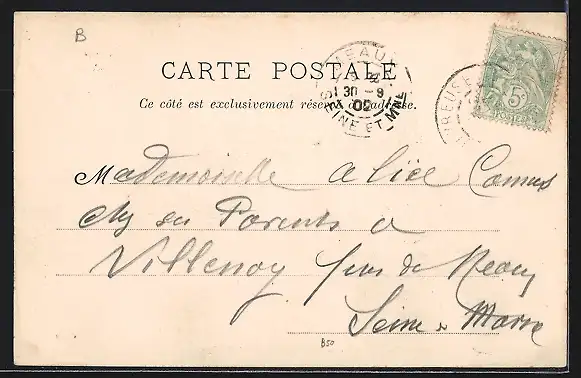 B
CARTE POSTALE
Ce côté est exclusivement réservé à l'adresse.
MEAUX
30 - 9
02
SEINE ET MNE
5c
POSTES
Mademoiselle Alice Camus
chez ses Parents a
Villenoy près de Meaux
Seine & Marne
B50